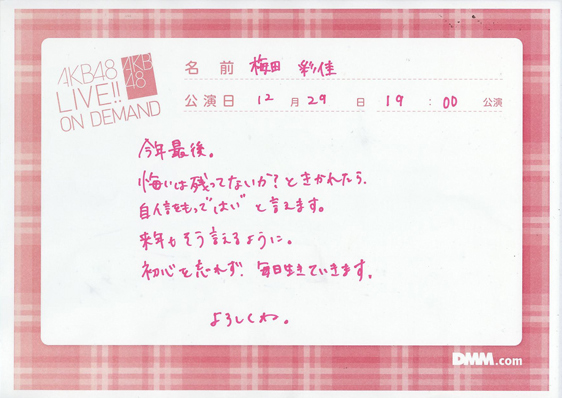 AKB48
LIVE!!
ON DEMAND
AKB
48
名前 梅田 彩佳
公演日 12月29日 19:00公演
今年最後。
悔いは残ってないか?ときかれたら、
自信をもって"はい"と言えます。
来年もそう言えるように。
初心を忘れず、毎日生きていきます。
よろしくね。
DMM.com